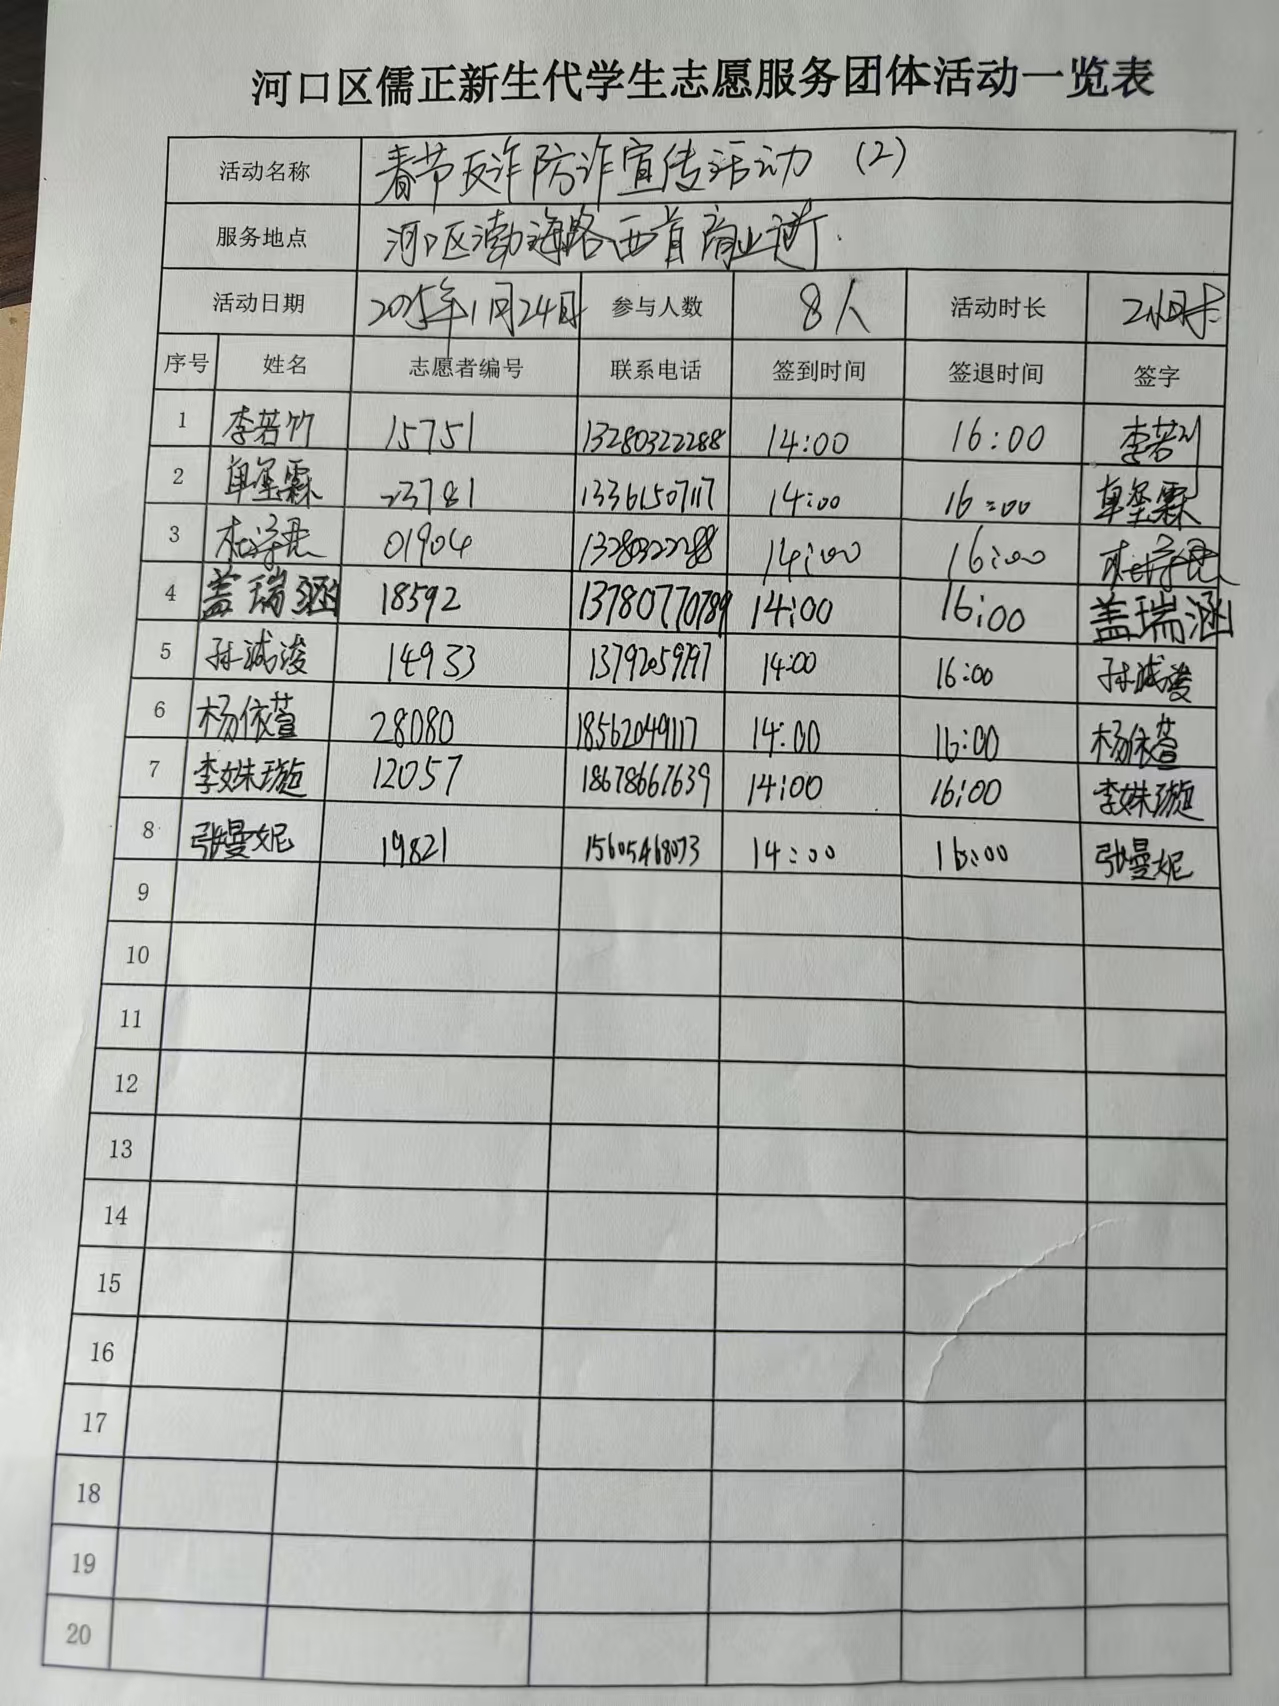 河口区儒正新生代学生志愿服务团体活动一览表
活动名称 春节反诈防诈宣传活动（2）
服务地点 河口区渤海路西首商业街.
活动日期 2025年1月24日 参与人数 8人 活动时长 2小时
序号 姓名 志愿者编号 联系电话 签到时间 签退时间 签字
1 李若竹 15751 13280322288 14:00 16:00 李若竹
2 单玺霖 23781 13361507117 14:00 16:00 单玺霖
3 01904 13280322288 14:00 16:00
4 盖瑞涵 18592 13780770789 14:00 16:00 盖瑞涵
5 孙诚浚 14933 13792059797 14:00 16:00 孙诚浚
6 杨依萱 28080 18562049117 14:00 16:00 杨依萱
7 李姝璇 12057 18678667639 14:00 16:00 李姝璇
8 张曼妮 19821 15605468073 14:00 16:00 张曼妮
9
10
11
12
13
14
15
16
17
18
19
20